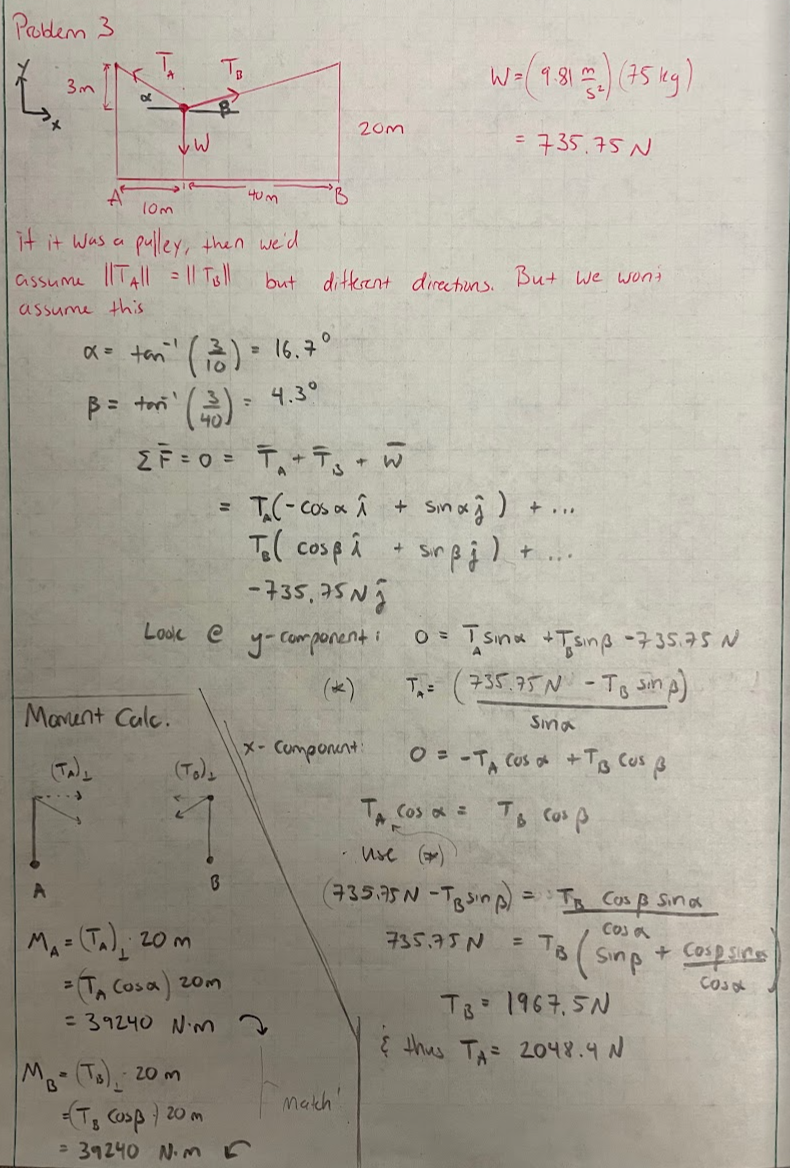 Problem 3
Y
x
3m
T_A
T_B
α
β
W
20m
A
B
10m
40m
W = (9.81 m/s²)(75 kg)
= 735.75 N
if it was a pulley, then we'd
assume ||T_A|| = ||T_B|| but different directions. But we won't
assume this
α = tan⁻¹ (3/10) = 16.7°
β = tan⁻¹ (3/40) = 4.3°
Σ F̄ = 0 = T̄_A + T̄_B + W̄
= T_A(-cos α î + sin α ĵ) + ...
T_B( cos β î + sin β ĵ) + ...
-735.75 N ĵ
Look @ y-component: 0 = T_A sin α + T_B sin β - 735.75 N
(*) T_A = (735.75 N - T_B sin β) / sin α
x-component: 0 = -T_A cos α + T_B cos β
T_A cos α = T_B cos β
· use (*)
(735.75 N - T_B sin β) = T_B cos β sin α / cos α
735.75 N = T_B (sin β + cos β sin α / cos α)
T_B = 1967.5 N
& thus T_A = 2048.4 N
Moment Calc.
(T_A)⊥
(T_B)⊥
A
B
M_A = (T_A)⊥ · 20 m
= (T_A cos α) 20m
= 39240 N·m ↷
M_B = (T_B)⊥ · 20 m
= (T_B cos β) 20 m
= 39240 N·m ↶
match!